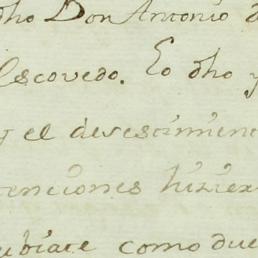 dho Don Antonio d
Escovedo. Eo dho y
y el desestimien
tenciones hizier
ubiare como due